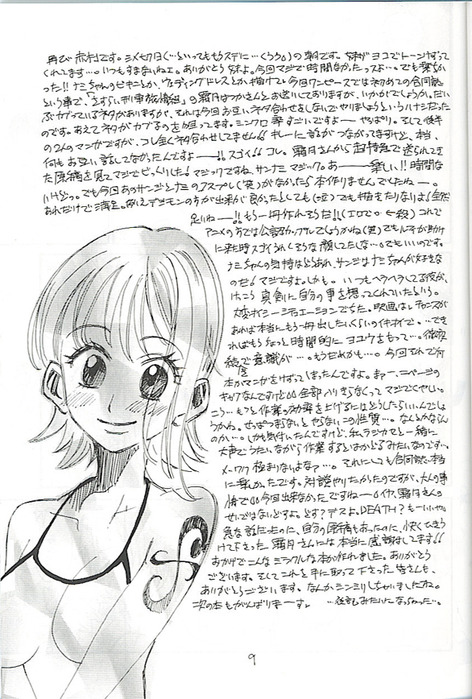 再び市村です。シメ切り日(…といってももうスデに…くうう)の朝です。妹がヨコでトーンはって
くれてます…。いつもすまないねェ。ありがとう妹よ。今回マジで時間なかったっス…。でも楽しか
った!!ナミちゃんのビキニとか、ウェディングドレスとか描けて♡今回ワンピースでは初めての合同誌
という事で、
の霜月はつかさんとお送りしておりますが、いかがでしょうか。だい
ぶカブっているネタがありますが、それは今回お互いネタ合わせをしないでやりましょうというハラだった
のです。あえてネタがカブるのを狙ってます。シンクロ率すごいですよーやっぱり。そして後半
の2人のマンガですが、コレ全くネタ合わせしてません!!キレーに話がつながってますけど、本当、
何もお互い話してなかったんですよ――!!スゴイ!!コレ。霜月さんから超特急で送られてき
た原稿を見てマジでビックリした!!マジックですね。サンナミマジック。あー楽しい!!時間な
いけど。でも今回あのサンジとナミのコスプレ(笑)がなかったら本作りませんでしたねー。
足りねー!!もう一冊作れそうだ!!
アニメの方では公認カップルでしょうかね(笑)でもルフィが助け
に来た時スゴイうれしそうな顔してたしな…。でもいいのです。
ナミちゃんの気持はどうあれ、サンジはナミちゃんが好きな
のだ!マジですよ。しかも。いつもヘラヘラしてる彼が、
けっこう真剣に自分の事を想ってくれていたという。
シチュエーションでした。映画はレ
あれば本当にもう一冊出したいくらいのイキオイで…。でき
ればもうちょっと時間的にヨユウをもって…。徹夜
続で意識が…。もうだめかも…。今回それで
本のマンガをけずってしまったんですよ。まァ一、二ページの
ギャグなんですけど全部入りきらなくってマジでくやしい。
こう…もっと作業の効率を上げるにはどうしたらいいんでしょ
うかね。せっぱつまらないとやらないこの性質…。なんとかならん
のか…。しかも気付いたんですけど、私ラジカセと一緒に
大声でうたいながら作業するとはかどるみたいなのです…
メーワク極まりないよなァ…。それにしても合同誌、本当
に楽しかったです。対談やりたかったのですが、大人の事
情で今回出来なかったですねーイヤ、霜月さんの
せいではないどすよ。どす?デスよ。DEATH?もーいいや。
急な話だったのに、自分の原稿もあったのに、快くひきう
けて下さった霜月さんには本当に感謝してます!!
おかげでこんなミラクルな本が作れました。ありがとう
ございます。そしてこれを手に取って下さった皆さんも、
ありがとうございます。なんかシンミリしちゃいましたね。
次の本もがんばりまーす。…後記みたいになっちゃった…。
9